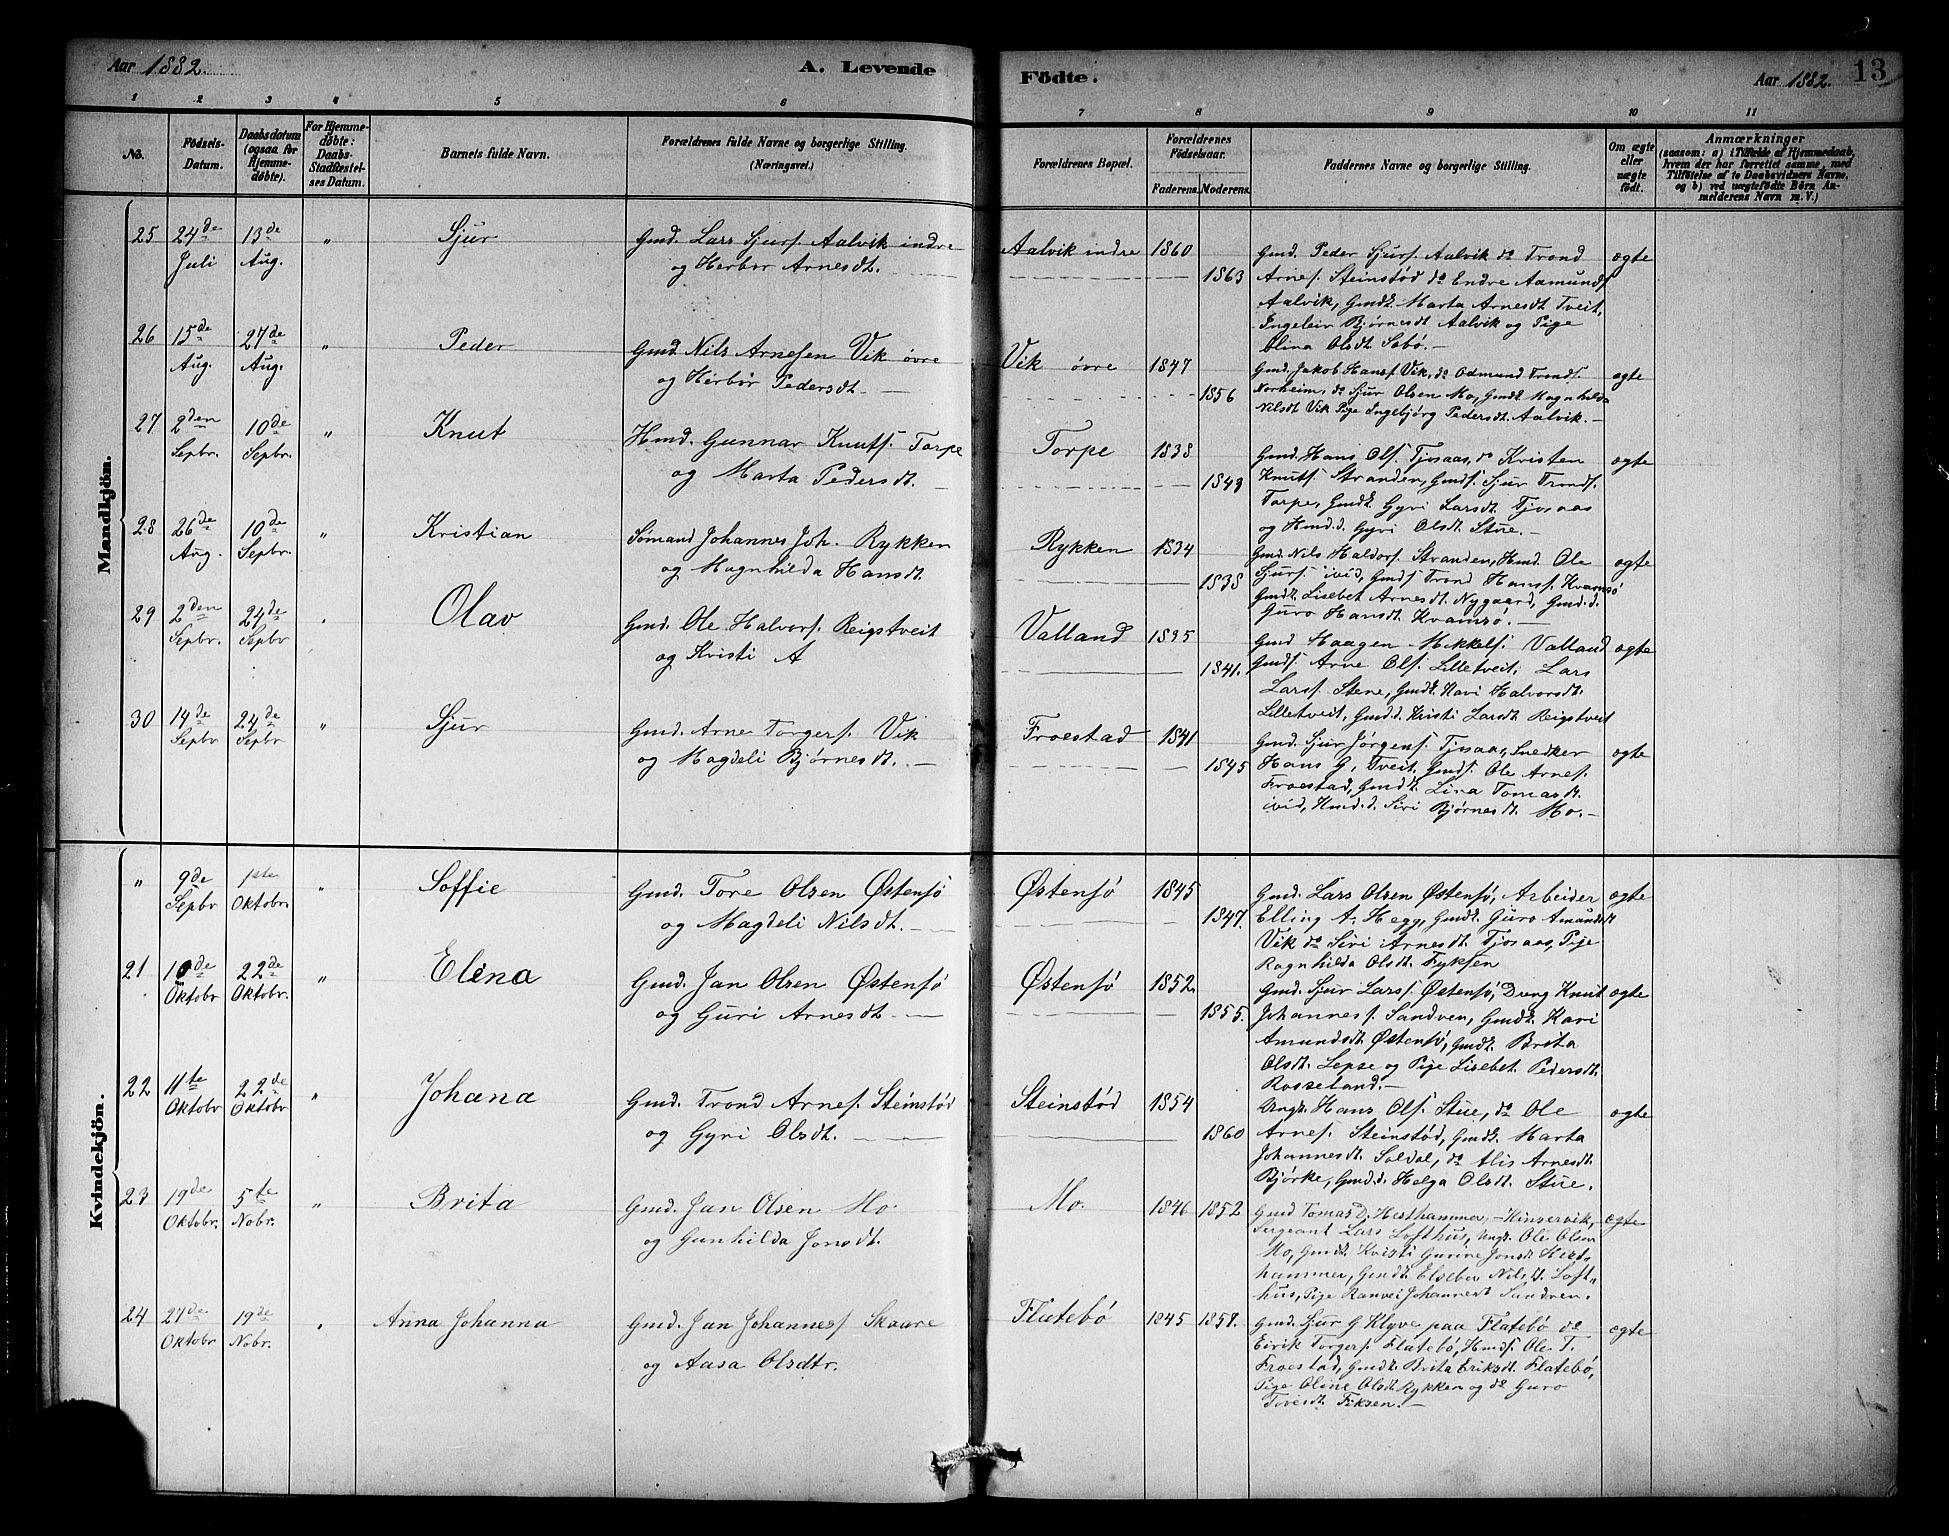 Aar 1882. A. Levende Födte. Aar 1882. 13
1 2 3 4 5 6 7 8 9 10 11
No. Födsels-Datum. Daabsdatum (ogsaa for Hjemme-døbte). For Hjemme-døbte: Daabs-Stadfæstel-ses Datum. Barnets fulde Navn. Forældrenes fulde Navne og borgerlige Stilling. (Næringsvei.) Forældrenes Bopæl. Forældrenes Födselsaar. Faderens. Moderens. Faddernes Navne og borgerlige Stilling. Om ægte eller uægte födt. Anmærkninger (saasom: a) i Tilfælde af Hjemmedaab, hvem der har forrettet samme, med Tilföielse af to Daabsvidners Navne, og b) ved uægtefödte Börn An-melderens Navn m. V.)
Mandkjön.
25 24de Juli 13de Aug. " Sjur Gmd. Lars Sjurs. Aalvik indre
og Herbor Arnesdt.
Aalvik indre 1860 1863
Gmd. Peder Sjurs. Aalvik do Trond
Arnes. Steinstød do Endre Aamunds.
Aalvik, Gmdk. Marta Arnesdt Tveit,
Ingeleiv Bjørnesdt Aalvik og Pige
Elina Olsdt Sæbø. —
ægte
26 15de Aug. 27de Aug. " Peder Gmd Nils Arnesen Vik øvre
og Herbor Pedersdt. —
Vik øvre 1847 1856
Gmd. Jakob Hans. Vik, do Odmund Tronds.
Norheim, do Sjur Olsen Mo, Gmdk. Magnhilda
Nilsdt Vik Pige Ingebjörg Pedersdt. Aalvik. —
ægte
27 2den Sepbr. 10de Sepbr. " Knut Hmd. Gunnar Knuts. Torpe
og Marta Pedersdt. —
Torpe 1838 1849
Gmd. Hans Ols. Tjosaas, do Kristen
Knuts. Stranden, Gmds. Sjur Tronds.
Torpe, Gmdk. Gyri Larsdt. Tjosaas
og Hmd.d. Gyri Olsdt. Stue. —
ægte
28 26de Aug. 10de Sepbr. " Kristian Sømand Johannes Joh. Rykken
og Magnhilda Hansdt.
Rykken 1834 1838
Gmd. Nils Haldors. Stranden, Hmd. Ole
Sjurs. ivid, Gmds. Trond Hans. Kvamsø
Gmdk. Lisebet Arnesdt. Nygaard, Gmd.d.
Guro Hansdt. Kvamsø. —
ægte
29 2den Sepbr. 24de Sepbr " Olav Gmd. Ole Halvors. Reigstveit
og Kristi A
Valland 1835 1841.
Gmd Haagen Mikkels. Valland
Gmds. Arne Ols. Lilletveit, Lars
Lars. Stene, Gmdk. Kari Halvorsdt.
Lilletveit, Gmd.d. Kristi Larsdt. Reigstveit
ægte
30 14de Sepbr 24de Sepbr " Sjur Gmd. Arne Torgers. Vik
og Magdeli Bjørnesdt. —
Froestad 1841 1845
Gmd. Sjur Jørgens. Tjosaas, Snedker
Hans G. Tveit, Gmds. Ole Arnes.
Froestad, Gmdk. Lina Tomasdt.
ivid, Hmd.d. Siri Bjørnesdt. Mo. —
ægte
Kvindekjön.
" 9de Sepbr 1ste Oktobr. " Soffie Gmd. Tore Olsen Østensjø
og Magdeli Nilsdt. —
Østensjø 1845 1847.
Gmd. Lars Olsen Østensjø, Arbeider
Elling A. Hegg, Gmdk. Guro Amundsdt
Vik do Siri Arnesdt. Tjosaas, Pige
Ragnhilda Olsdt. Fyksen
ægte
21 10de Oktobr 22de Oktobr. " Elina Gmd. Jan Olsen Østensjø
og Guri Arnesdt. —
Østensjø 1852. 1855.
Gmd. Sjur Lars. Østensjø, Dreng Knut
Johannes. Sandven, Gmdk. Kari
Amundsdt Østensjø, Gmdk. Brita
Olsdt. Lepse og Pige Lisebet Pedersdt.
Rosseland. —
ægte
22 11te Oktobr 22de Oktobr " Johana Gmd. Trond Arnes. Steinstød
og Gyri Olsdt. —
Steinstød 1854 1860
Ungk. Hans Ols. Stue, do Ole
Arnes. Steinstød, Gmdk. Marta
Johannesdt Soldal, do Alis Arnesdt
Bjørke, Gmd.d. Helga Olsdt. Stue.
ægte
23 19de Oktobr. 5te Nobr. " Brita Gmd. Jan Olsen Mo.
og Gunhilda Jonsdt.
Mo. 1846 1852
Gmd Tomas D. Hesthammer, — Kinservik,
Sergeant Lars Lofthus, Ungk. Ole Olsen
Mo, Gmdk. Kristi Gurine Jonsdt Hest-
hammer, Gmdk. Elseber Nilsdt. Loft-
hus, Pige Ranvei Johannesdt Sandven.
ægte
24 27de Oktobr 19de Nobr. " Anna Johanna Gmd. Jan Johannes. Skaare
og Aasa Olsdtr.
Flatebø 1845 1858.
Gmd. Sjur G Klyve paa Flatebø do
Eirik Torgers. Flatebø, Hmds. Ole T.
Froestad, Gmdk. Brita Eriksdt. Flatebø,
Pige Oline Olsdt Rykken og do Guro
Toresdt Fiksen. —
ægte